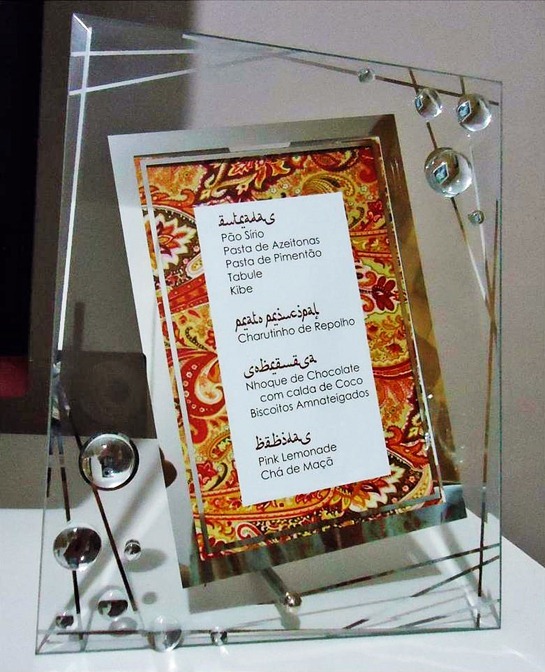 entradas
Pão Sírio
Pasta de Azeitonas
Pasta de Pimentão
Tabule
Kibe
prato principal
Charutinho de Repolho
sobremesa
Nhoque de Chocolate
com calda de Coco
Biscoitos Amnateigados
bebidas
Pink Lemonade
Chá de Maçã